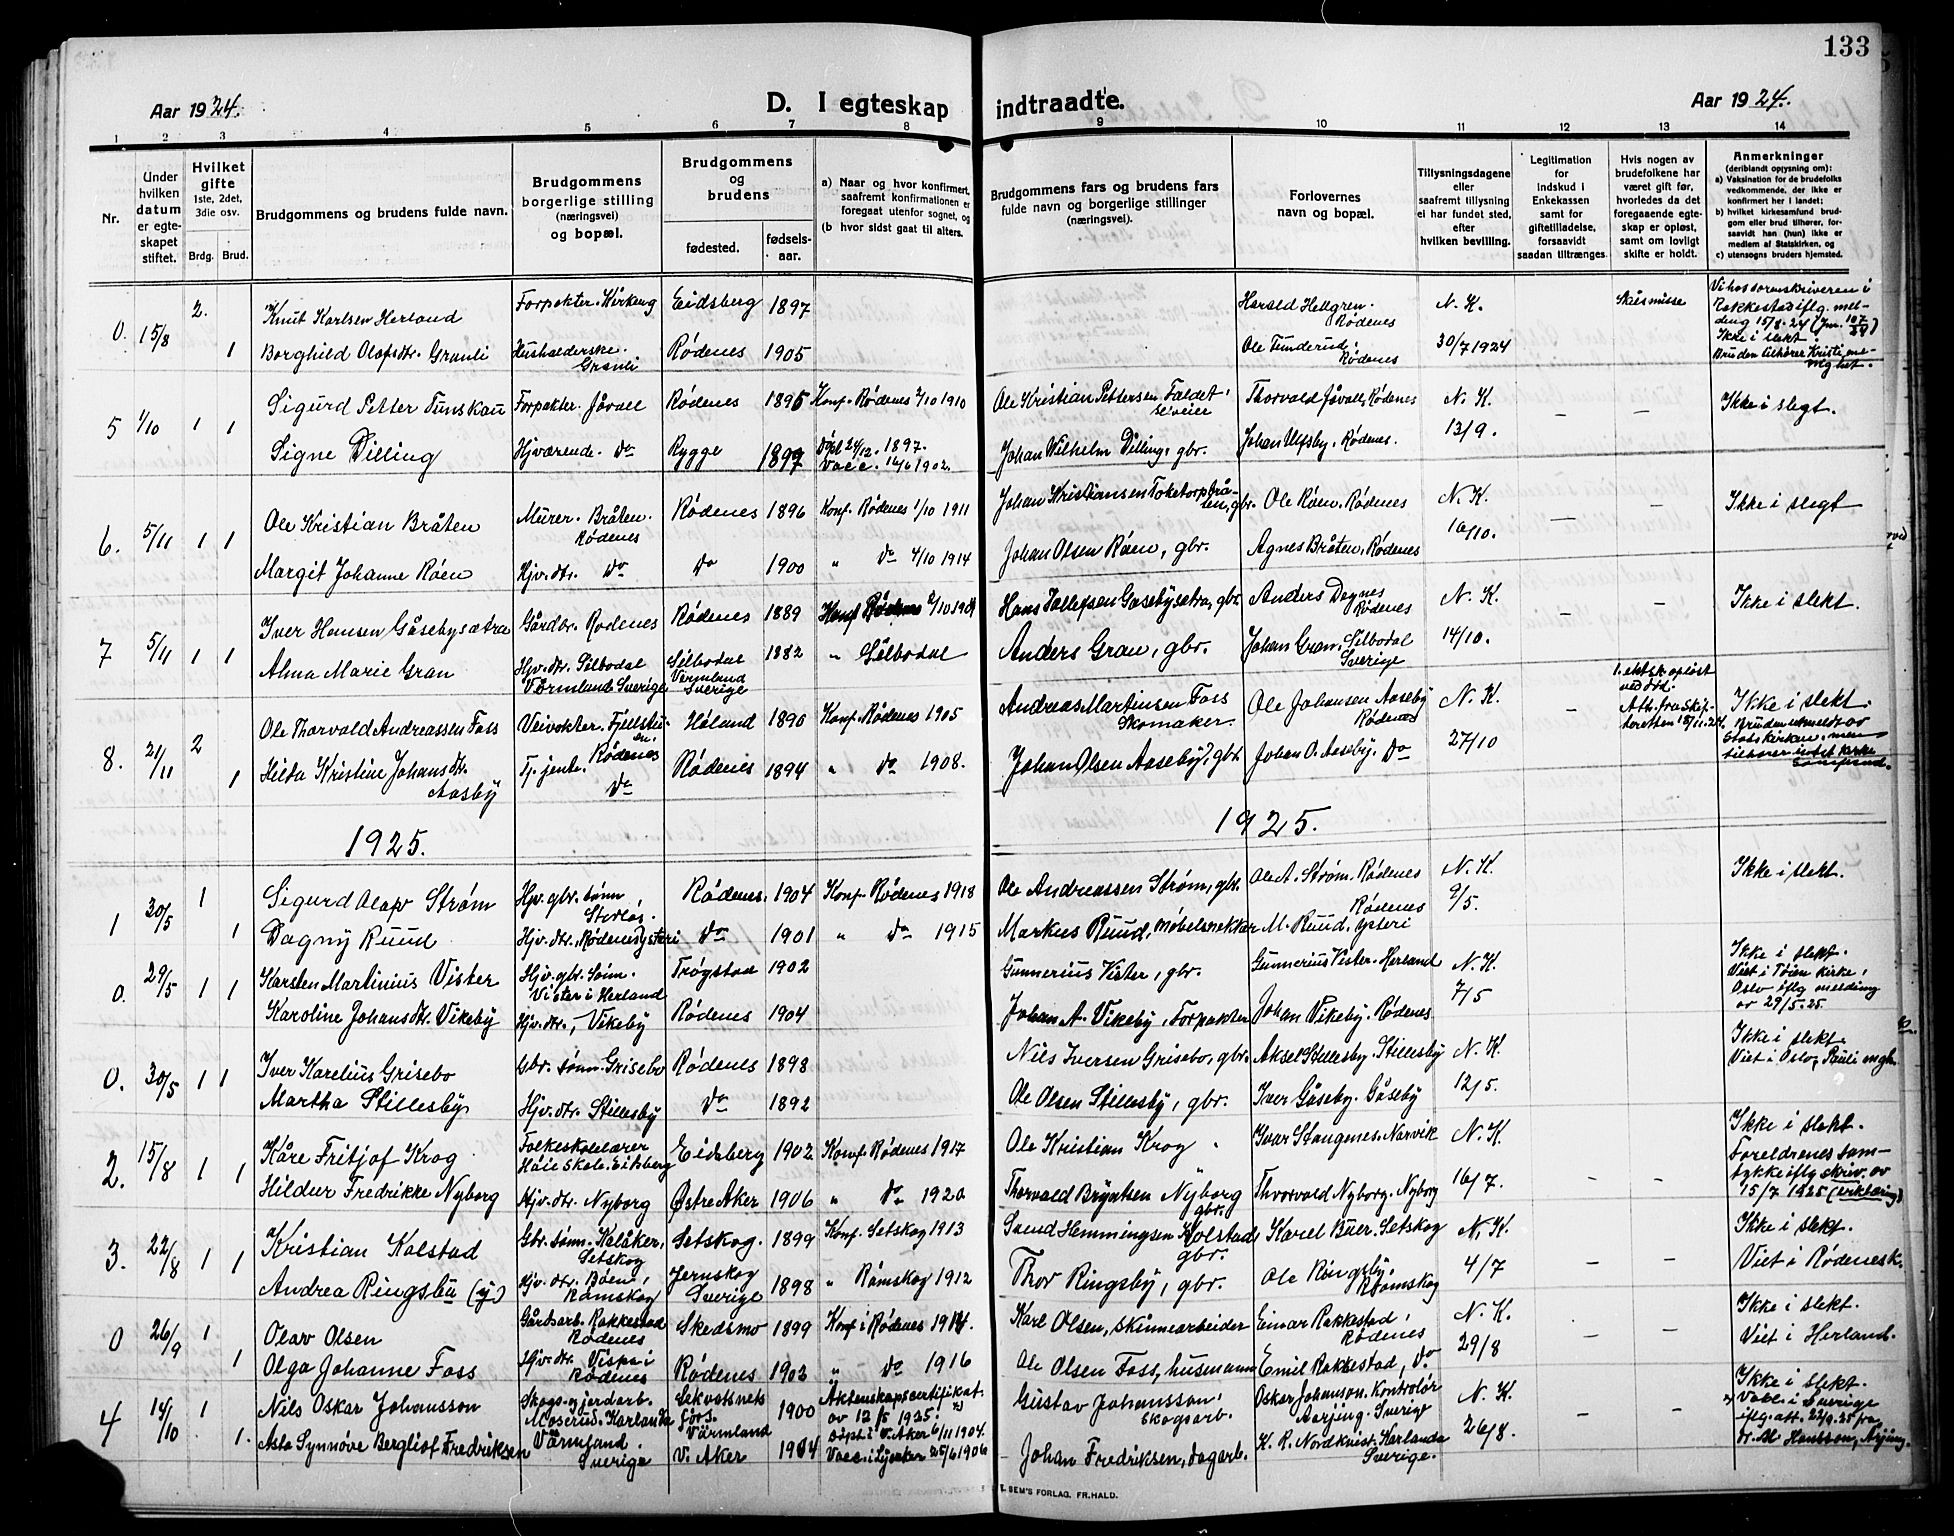 133
Aar 1924.
D. I egteskap
indtraadte.
Aar 1924.
1 2 3 4 5 6 7 8 9 10 11 12 13 14
Nr.
Under hvilken datum er egteskapet stiftet.
Hvilket gifte 1ste, 2det, 3die osv.
Brdg. Brud.
Brudgommens og brudens fulde navn.
Brudgommens borgerlige stilling (næringsvei) og bopæl.
Brudgommens og brudens
fødested.
fødselsaar.
a) Naar og hvor konfirmert, saafremt konfirmationen er foregaat utenfor sognet, og
(b hvor sidst gaat til alters.
Brudgommens fars og brudens fars fulde navn og borgerlige stillinger (næringsvei).
Forlovernes navn og bopæl.
Tillysningsdagene eller saafremt tillysning ei har fundet sted, efter hvilken bevilling.
Legitimation for indskud i Enkekassen samt for giftetilladelse, forsaavidt saadan tiltrænges.
Hvis nogen av brudefolkene har været gift før, hvorledes da det foregaaende egteskap er opløst, samt om lovligt skifte er holdt.
Anmerkninger (deriblandt oplysning om):
a) Vaksination for de brudefolks vedkommende, der ikke er konfirmert her i landet;
b) hvilket kirkesamfund brudgom eller brud tilhører, forsaavidt han (hun) ikke er medlem af Statskirken, og
c) utensogns bruders hjemsted.
0. 15/8 2. Knut Karlsen Herland Forpakter. Kirkeng Eidsberg 1897 Harald Hellgren. Rødenes N. K. Skilsmisse
1 Borghild Olafsdtr. Granli Husholderske. Granli Rødenes 1905 Ole Tunderud. Rødenes 30/7 1924
Vi hos sorenskriveren i Rakkestad iflg. melding 15/8-24 (Jnr. 107/24) Ikke i slekt. Bruden tilhører Kristi menighet.
5 1/10 1 1 Sigurd Petter Tunskau Forpakter. Jåvall Rødenes 1895 Konf. Rødenes 2/10 1910 Ole Kristian Pettersen Faldet, selveier Thorvald Jåvall, Rødenes N. K. – – Ikke i slegt.
Signe Dilling Hjværende. Do Rygge 1897 Døpt 24/12. 1897. Vacc. 16/6 1902. Johan Wilhelm Dilling, gbr. Johan Ulfsby, Rødenes. 13/9.
6. 5/11 1 1 Ole Kristian Bråten Murer. Bråten. Rødenes Rødenes 1896 Konf. Rødenes 1/10 1911 Johan Kristiansen Toketorpbråten, gbr. Ole Røen. Rødenes N. K. – – Ikke i slegt
Margit Johanne Røen Hjv. dtr. Do Do 1900 " Do 4/10 1914 Johan Olsen Røen, gbr. Agnes Bråten, Rødenes 16/10.
7 5/11 1 1 Iver Hansen Gåsebysætra Gårdbr. Rødenes Rødenes 1889 Konf Rødenes Hans Tollefsen Gåsebysætra, gbr. Anders Degnes Rødenes N. K. – – Ikke i slekt.
Alma Marie Gran Hjv. dtr. Silbodal Värmland Sverige Silbodal Vermland Sverige 1882 " Silbodal Anders Gran, gbr. Johan Gran. Silbodal Sverige 14/10.
8. 21/11 2 Ole Thorvald Andreassen Foss Veivokter. Rødenes Høland 1890 Konf. Rødenes 1905 Andreas Martinsen Foss Skomaker. Ole Johansen Aaseby Rødenes N. K. – 1. ektsk. opløst ved død. Att. fra skifteretten Ikke i slekt.
1 Hilda Kristine Johansdtr. Aasby Tj. jente. Do Rødenes 1894 " Do 1908. Johan Olsen Aaseby, gbr. Johan O. Aaseby. Do 27/10 Bruden utmeldt av Statskirken, men tilhører intet kirkesamfund.
1925. 1925.
1 30/5 1 Sigurd Olav Strøm Hjv. gbr. sønn Rødenes. 1904 Konf. Rødenes 1918 Ole Andreassen Strøm, gbr. Ole A. Strøm. Rødenes N. K. Ikke i slekt.
1 Dagny Ruud Hjv. dtr. Rødenes ysteri Do 1901 " Do 1915 Markus Ruud, møbelsnekker M. Ruud, Rødenes ysteri 9/5.
0. 29/5 1 1 Karsten Martinius Vister Hjv. gbr. sønn. Vister i Herland Trøgstad 1902 Gunnerius Vister, gbr. Gunnerius Vister. Herland N. K. Ikke i slekt. Viet i Tøien kirke, Oslo iflg melding av 29/5-25.
Karoline Johansdtr. Vikeby Hjv. dtr., Vikeby Rødenes 1904 Johan A. Vikeby, Forpakter Johan Vikeby. Rødenes 7/5
0. 30/5 1 1 Iver Karelius Grisebo Gbr. sønn. Grisebo Rødenes 1898 Nils Iversen Grisebo, gbr. Aksel Stillesby. Stillesby N. K. Ikke i slekt. Viet i Oslo, Pauli mgh.
Martha Stillesby Hjv. dtr. Stillesby Do 1892 Ole Olsen Stillesby, gbr. Iver Gåseby. Gåseby 12/5.
2. 15/8 1 1 Kåre Fritjof Krog Folkeskolelærer Høie Skole. Eidsberg Eidsberg 1902 Konf. Rødenes 1917 Ole Kristian Krog Ivar Stangenes. Narvik N. K. – – Ikke i slekt. Foreldrenes samtykke iflg skriv. av 15/7 1925 (erklæring)
Hildur Fredrikke Nyborg Hjv. dtr. Nyborg Østre Aker 1906 " Do 1920 Thorvald Bryntsen Nyborg gbr. Thorvald Nyborg. Nyborg 16/7.
3. 22/8 1 1 Kristian Kolstad Gbr. sønn. Kolåker, Setskog Setskog. 1899 Konf. Setskog 1913 Svend Hemmingsen Kolstad gbr. Karel Buer. Setskog N. K. – – Ikke i slekt. Viet i Rødenesk.
Andrea Ringsbu (y) Hjv. dtr. Bøen, Rømskog Jernskog Sverige 1898 " Rømskog 1912 Thor Ringsby, gbr. Ole Ringsby. Rømskog 4/7
0 26/9 1 Olav Olsen Gårdsarb. Rakkestad Rødenes Skedsmo 1899 Konf. i Rødenes 1914. Karl Olsen, skinnearbeider Einar Rakkestad, Rødenes N. K. – – Ikke i slekt. Viet i Herland.
1 Olga Johanne Foss Hjv. dtr. Rødenes Rødenes 1902 " Do 1916 Ole Olsen Foss, husmann Emil Rakkestad, Do 29/8
4 14/10 1 Nils Oskar Johansson Skogs- og jordarb. Moserud. Karlanda Värmland. Sverige Värmland 1900 Äktenskapscertifikat av 12/5 1925. Gustav Johansson, skogsarb. Oskar Johanson. Kontrolør Aarjing. Sverige N. K. Ikke i slekt. Vakc. i Sverige iflg. att. 22/9.25 fra dr. M Hansson, Årjäng.
1. Asta Synnøve Bergliot Fredriksen V. Aker 1904 Døpt i V. Aker 6/11 1904. Vacc. i 25/6 1906 Johan Fredriksen, dagarb. K. R. Nordkvist. Karlanda Sverige. 26/8.
E. SEM'S FORLAG, FR.HALD.